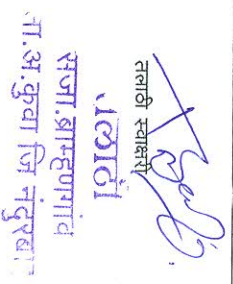 तलाठी स्वाक्षरी
तलाठी
सजा.ब्राम्हणगांव
ता.अ.कुवा जि नंदुरबा